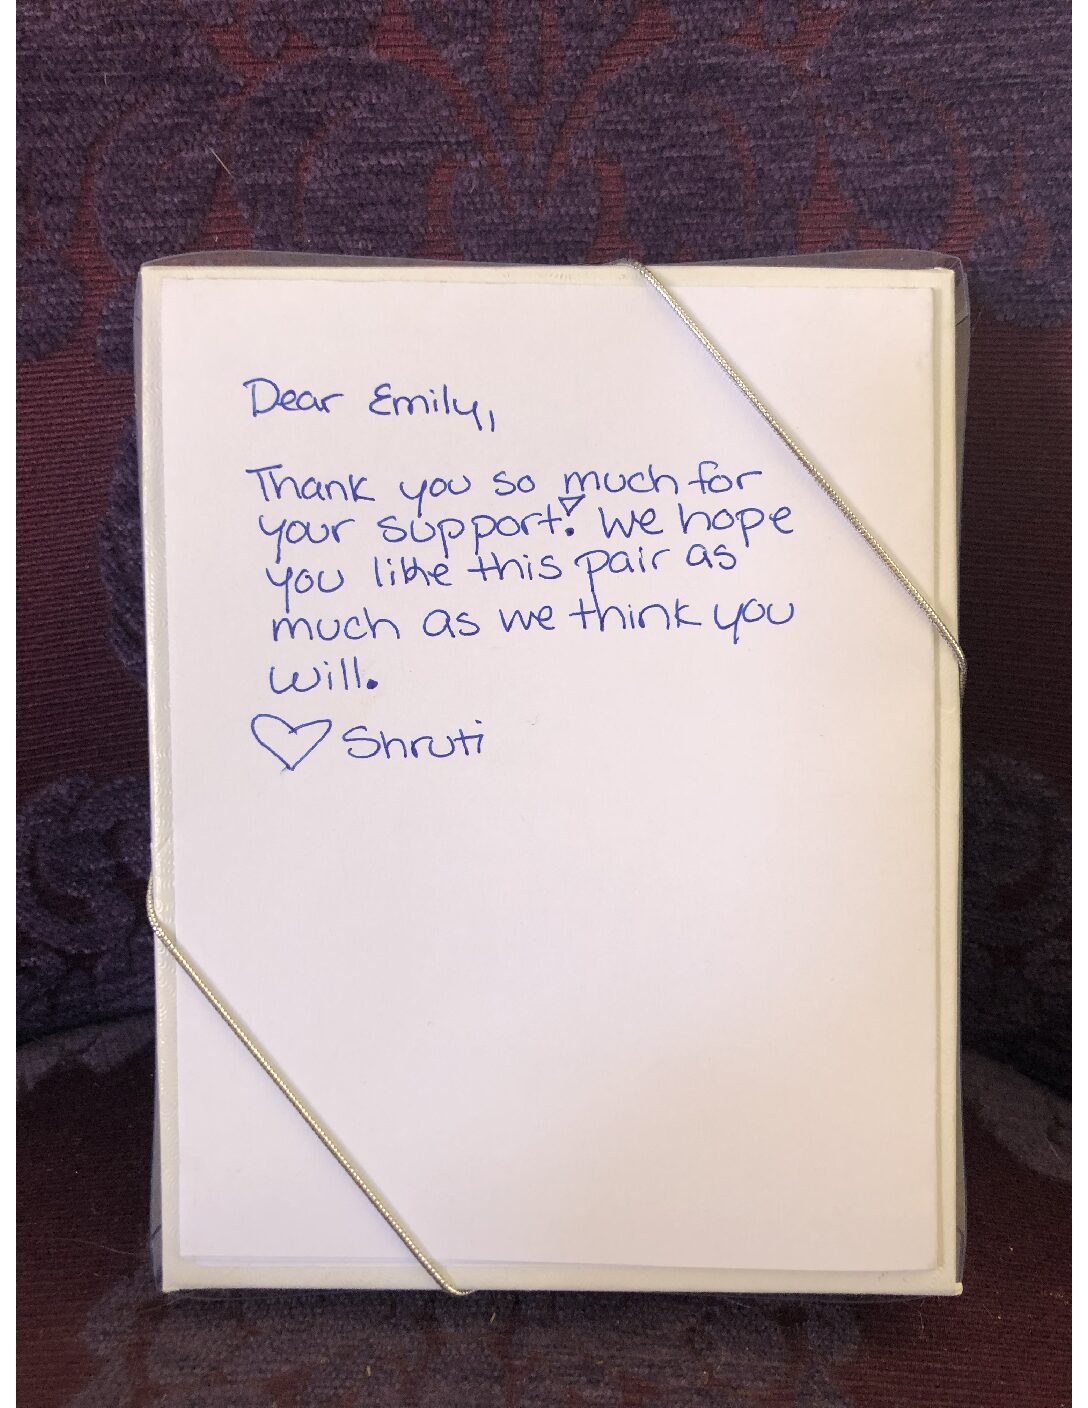 Dear Emily,
Thank you so much for
your support! We hope
you like this pair as
much as we think you
will.
♡ Shruti